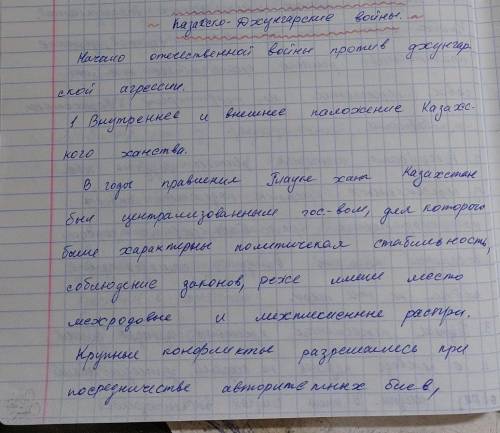 Казахско-Джунгарские войны.
Начало отечественной войны против джунгар-
ской агрессии.
1 Внутреннее и внешнее положение Казахс-
кого ханства.
В годы правления Тауке хана Казахстан
был централизованным гос-вом, для которого
были характерны политическая стабильность,
соблюдение законов, реже имели место
межродовые и межплеменные распри.
Крупные конфликты разрешались при
посредничестве авторитетных биев,